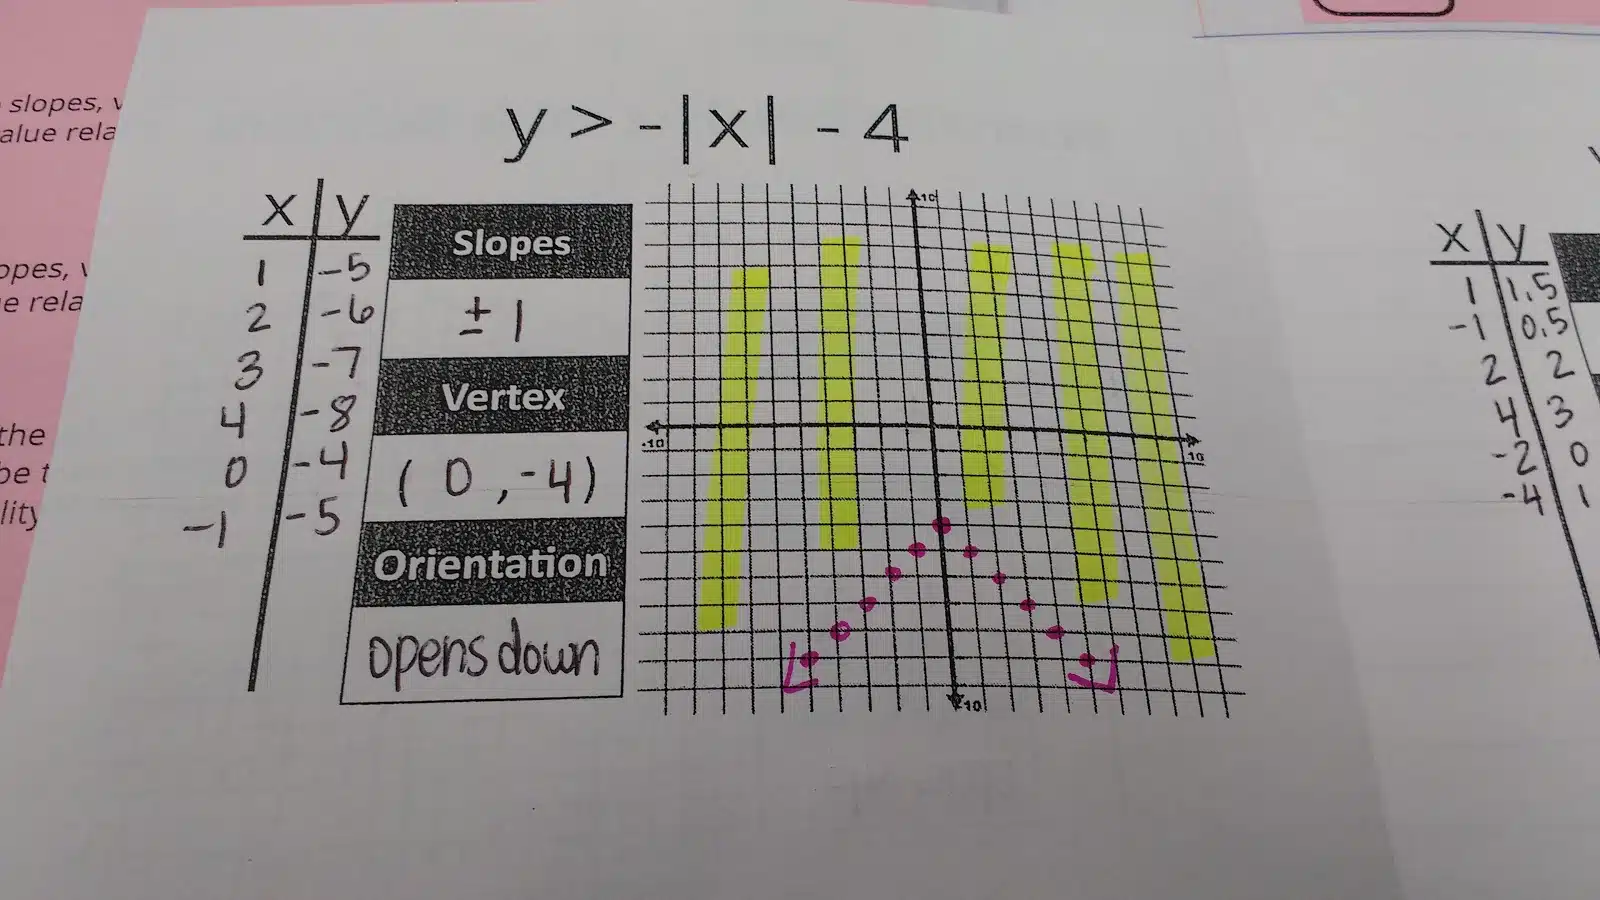 slopes, v
alue rela
opes, v
e rela
the
be t
lity
y > -|x| - 4
x y
1 -5
2 -6
3 -7
4 -8
0 -4
-1 -5
Slopes
± 1
Vertex
( 0 , -4 )
Orientation
opens down
10
-10
10
-10
x y
1 1.5
-1 0.5
2 2
4 3
-2 0
-4 1